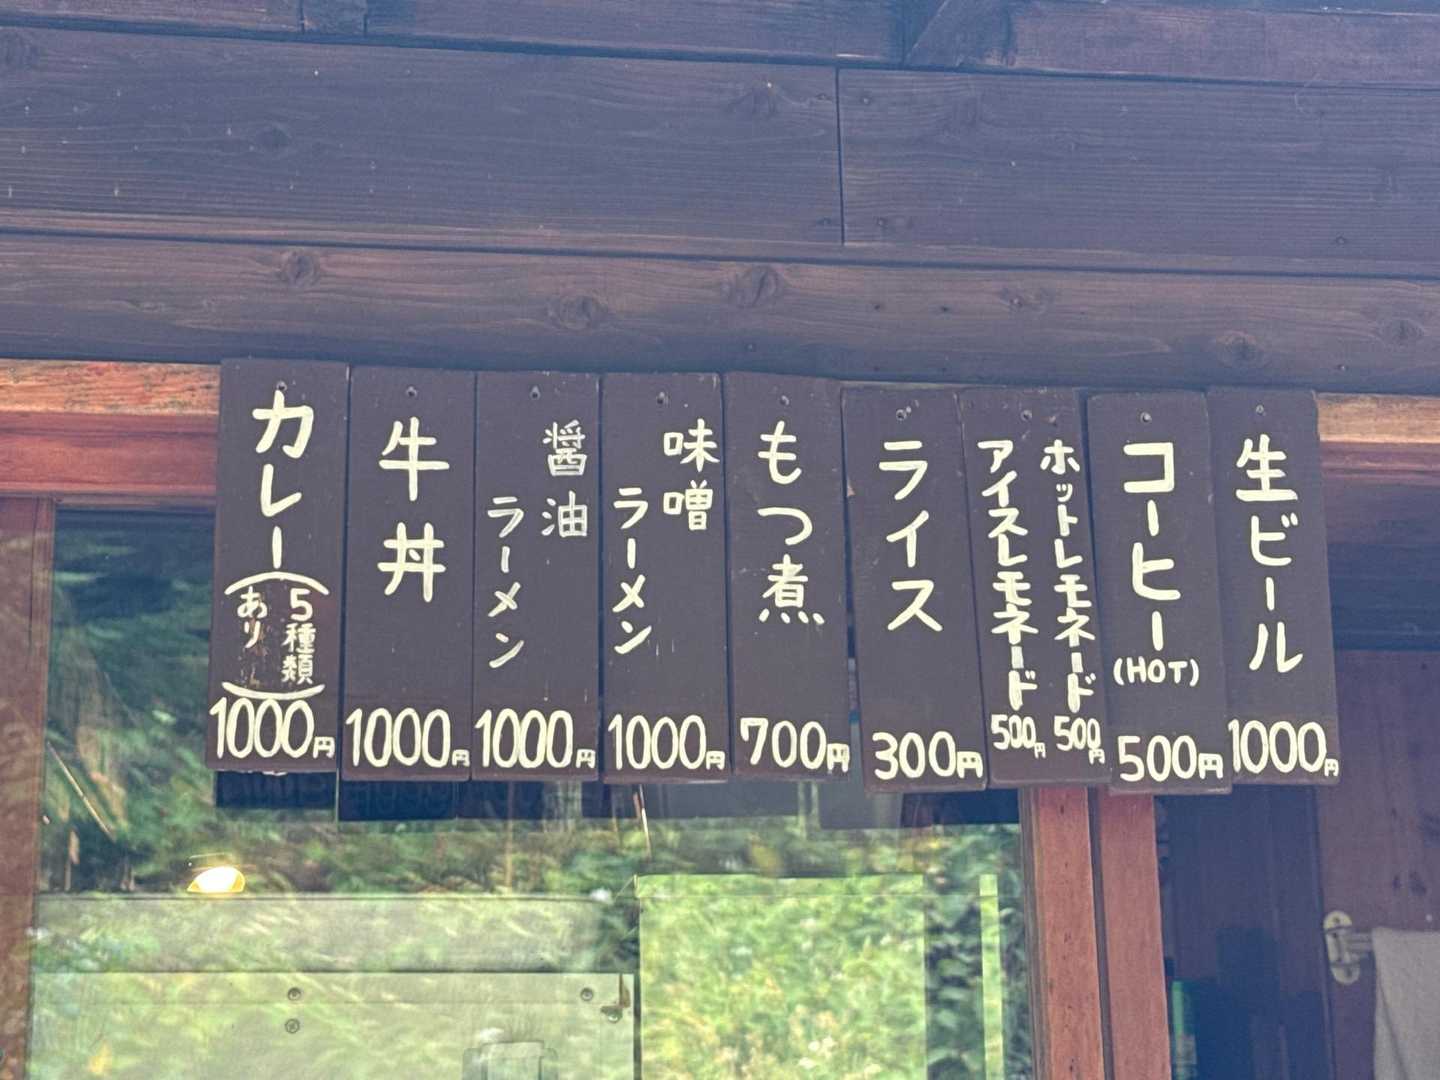 カレー
(5種類
あり)
1000円
牛丼
1000円
醤油
ラーメン
1000円
味噌
ラーメン
1000円
もつ煮
700円
ライス
300円
ホットレモネード
500円
アイスレモネード
500円
コーヒー
(HOT)
500円
生ビール
1000円